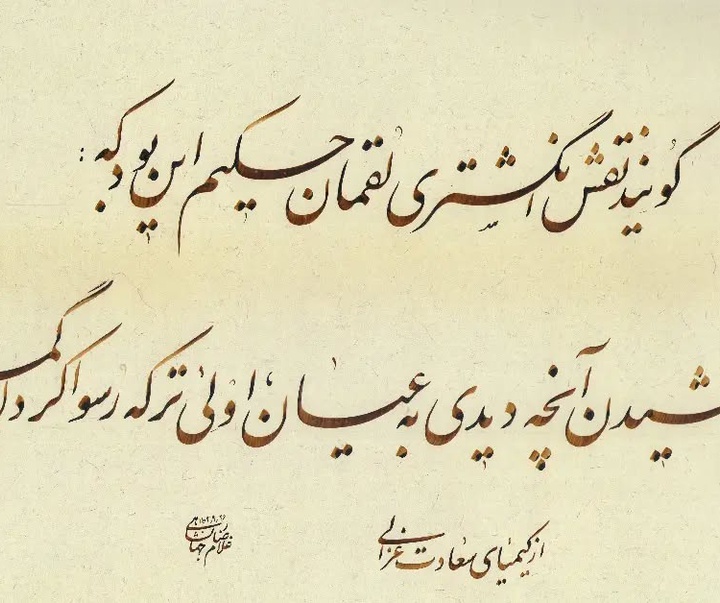 گویند نقش انگشتری لقمان حکیم این بود که :
شیدن آنچه دیدی به عیان، اولی‌تر که رسوا کردن گم
از کیمیای سعادت غزالی
غلامرضا